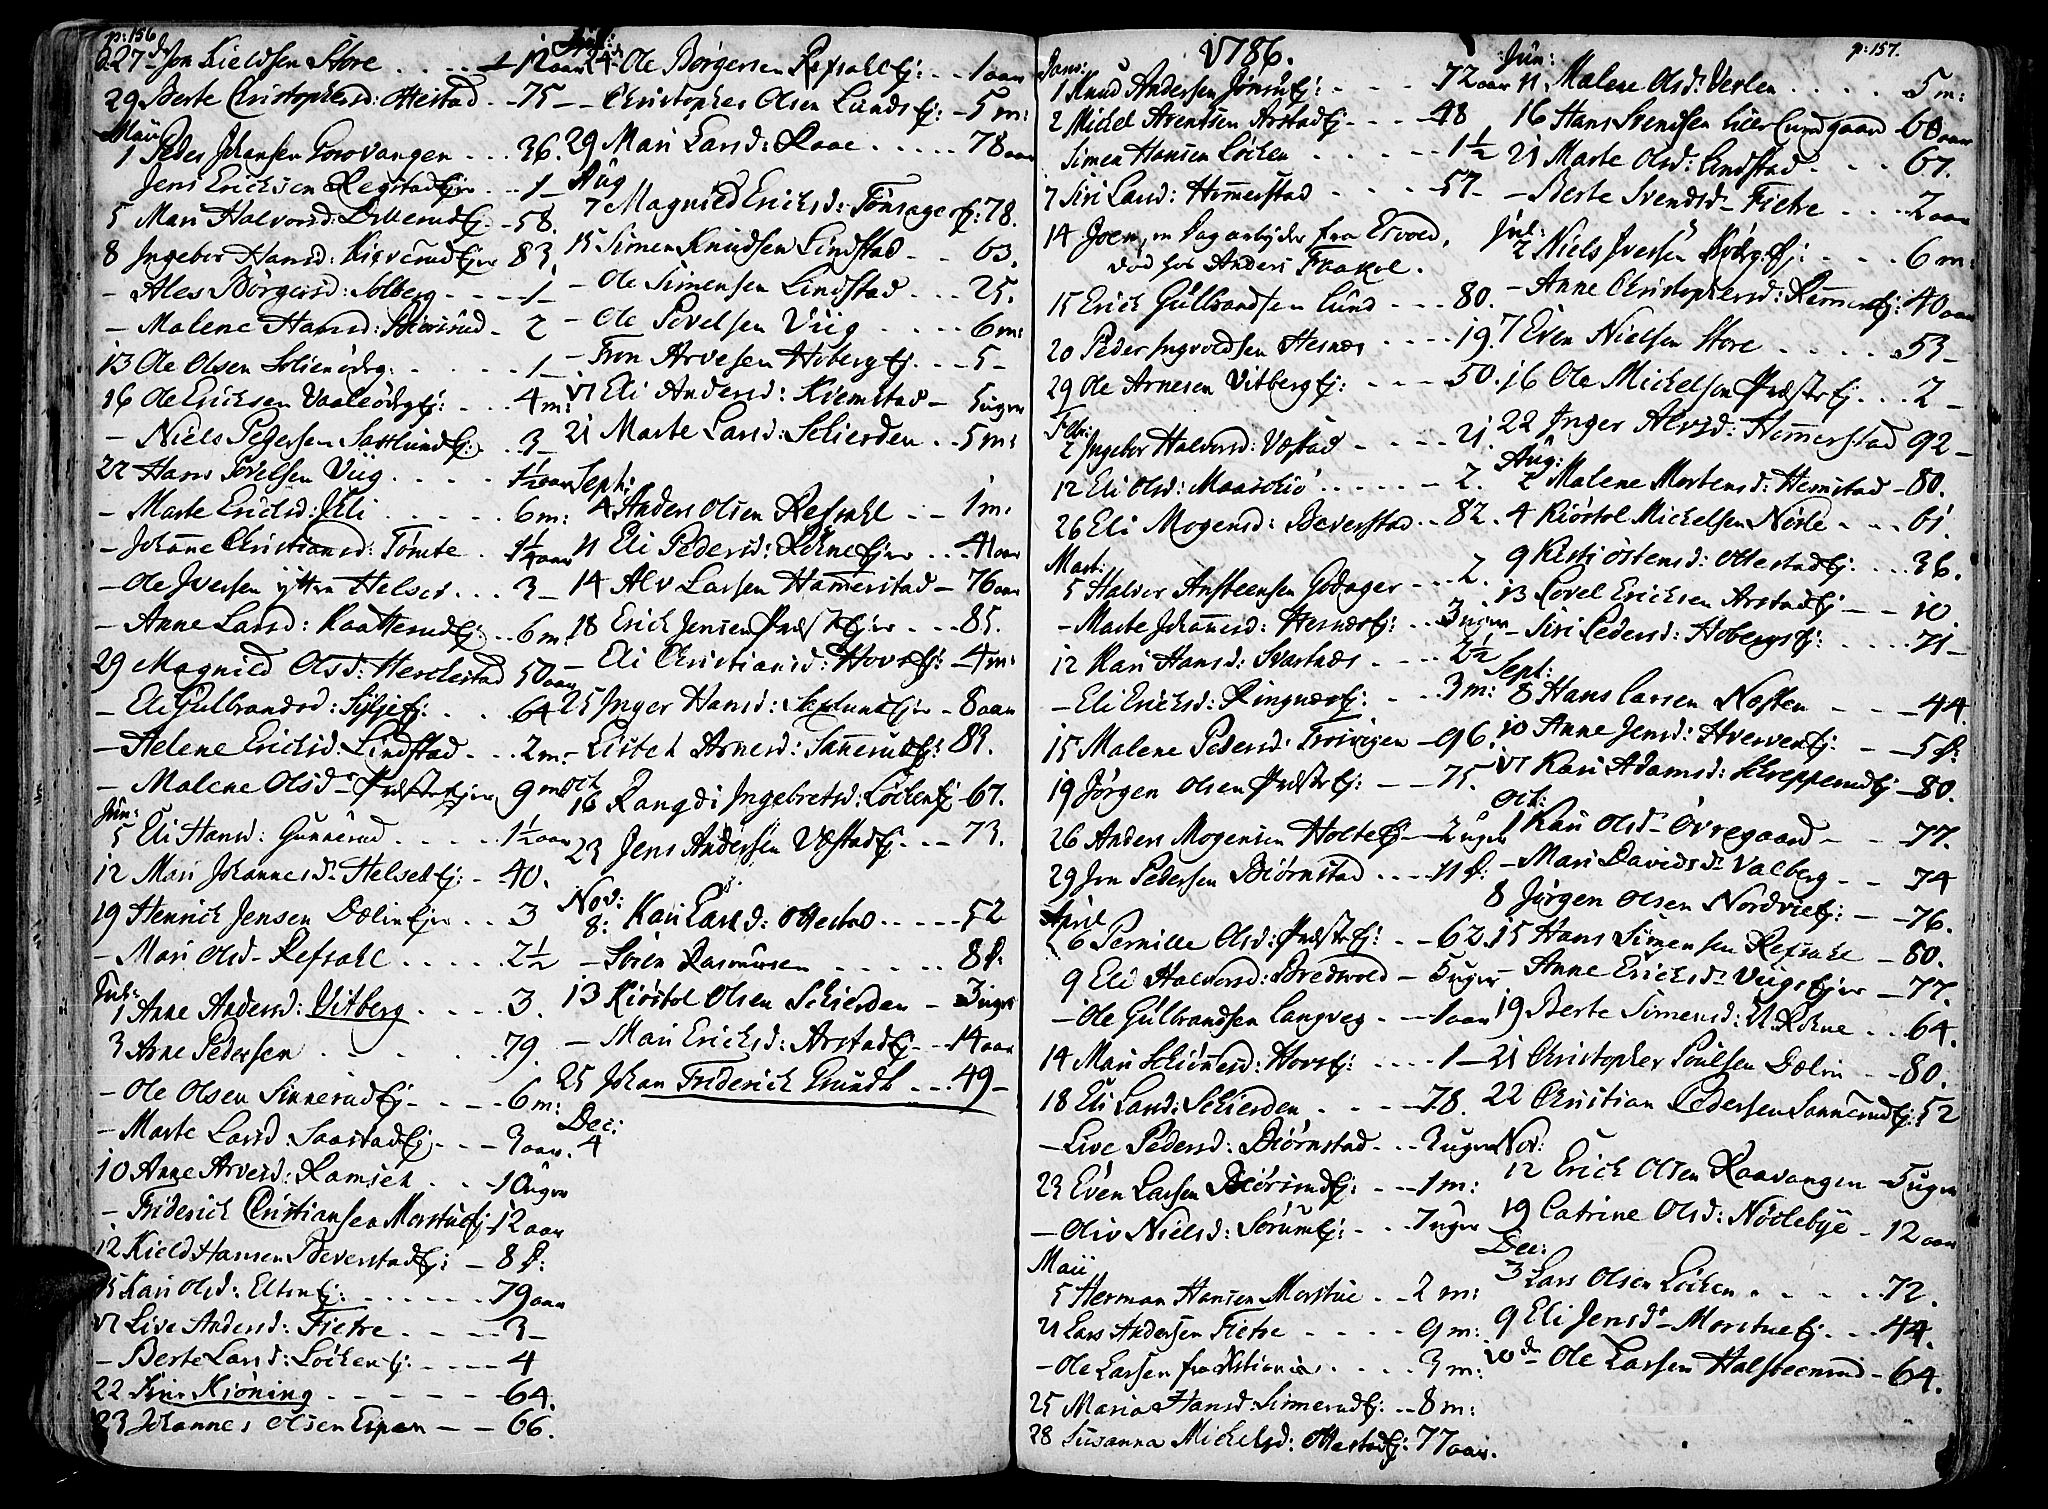 p: 156
27 dn Jon Kieldsen Store . . . . 12 aar
29 Berte Christophersd: Ottestad . . 75 -
Maii
1 Peder Johansen Gorovangen . . . 36.
Jens Ericksen Regstad Ejer . . 1 -
5 Mari Halvorsd: Dillerud Ej. - 58.
8 Ingebor Hansd: Kiæverud Ejer 83.
- Ales Børgersd: Solberg . . . 1 -
- Malene Hansd: Biørsrud - 2
13 Ole Olsen Solienødeg: . . . . 1 -
16 Ole Ericksen Vaaleødeg Ej: . . . 4 m:
- Niels Pedersen Saxlund Ej: . 3 -
22 Hans Povelsen Viig . . . . . 1½ aar
- Marte Ericksd: Ihli . . . . . 6 m:
- Johanne Christiansd: Tømte . 1¼ aar
- Ole Iversen ytter Helset . . . 3 -
- Anne Larsd: Raatterud Ej . . 6 m:
29 Magnild Olsd: Herdkstad 50 aar
- Eli Gulbrandsd: Siljeej: . . . 64
- Helene Ericksd: Lindstad . . 2 m:
- Malene Olsd: Præsteejer 9 m:
Jun:
5 Eli Hansd: Gunnerud . . . . 1½ aar
12 Mari Johannesd: Helset Ej: - 40.
19 Henrick Jensen Dælin Ejer . . 3
- Mari Olsd - Refsahl . . . . 2½
Jul:
1 Anne Andersd: Vitberg . . . . 3.
3 Arne Pedersen . . . . . 79.
- Ole Olsen Sinnerud Ej - . - - 6 m:
- Marte Larsd: Saastad Ej . . . 3 aar.
10 Anne Arvesd: Ramseh . . - 10 uger
- Friderich Christiansen Morstue Ej 12 aar
12 Kield Hansen Beverstad Ej: - 8 d:
15 Kari Olsd: Elton Ej: . . . . . . 79 aar
17 Live Andersd: Fietre . . . . . 3 -
- Berte Larsd: Løcken Ej: . . . . 4
22 Siri Kiøning . . . . . . 64.
23 Johannes Olsen Espen - - 66.
Jul:
24 Ole Børgersen Refsahl Ej: . . 1 aar
- Christopher Olsen Lunds Ej: - 5 m:
29 Mari Larsd: Raae . . . . . 78 aar
Aug
7 Magnild Ericksd: Tønsager Ej: 78.
15 Simen Knudsen Lindstad - . 63.
- Ole Simensen Lindstad . . . 25.
- Ole Povelsen Viig . . . . . 6 m:
- Tron Arvesen Hoberg Ej . . . 5 -
17 Eli Andersd: Kiemstad - 5 uger
21 Marte Larsd: Schierden . . 5 m:
Sept:
4 Anders Olsen Refsahl . . 1 m:
11 Eli Pedersd: Rohne Ejer . . . 41 aar
14 Alv Larsen Hammerstad - 76 aar
18 Erich Jensen Præst Ejer . . . 85.
- Eli Christiansd: Hovs Ej: - 4 m:
25 Inger Hansd: Saxlund Ejer - 8 aar
- Lisbeh Arnesd: Sannerud Ej: 89.
Oct
16 Rangdi Ingebretsd: Løcken Ej - 67.
23 Jens Andersen Vestad Ej . . - 73.
Nov:
8: Kari Larsd: Ottestad . . . . . 52
- Søren Rasmussen . . . . . . 8 d:
13 Kiøstol Olsen Schierden - 3 uger
- Mari Ericksd: Arstad Ej - - 14 aar
25 Johan Friderich Grundt . . . 49 -
Dec:
4
1786.
p: 157.
Jan:
1 Knud Andersen Jønsrud Ej: . . . . 72 aar
2 Mickel Arentsen Arstad Ej - . . . 48
Simen Hansen Løcken . . . . . 1½
7 Siri Larsd: Hommerstad . . . . . 57 -
14 Joen, en Dagarbejder fra Eivold,
død hos Anders Fraakol.
15 Erich Gulbrandsen Lund . . . 80.
20 Peder Ingvoldsen Hesnæs . . . . 19.
29 Ole Arnesen Vitberg Ej: . . . . 50.
Febr:
2 Ingebor Halvorsd: Vestad . . . . 21.
12 Eli Olsd: Maasehio . . . . . 2.
26 Eli Mogensd: Beverstad . . 82.
Mart:
5 Halvor Ansteensen Godager . . . 2.
- Marte Johannesd: Hesnæs Ej: . . 3 uger
12 Kari Hansd: Svartnæs . . . . 2½
- Eli Ericksd: Ringnæs Ej: . . 3 m:
15 Malene Pedersd: Frosvigen - 96.
19 Jørgen Olsen Præste Ej: - - 75.
26 Anders Mogensen Holte Ej - 2 uger
29 Jon Pedersen Biørnstad . . . 11 d:
April
6 Pernille Olsd: Præst Ej: . . 62.
9 Eli Halvorsd: Bredvold - 5 uger
- Ole Gulbrandsen Langveg . . - 1 aar
14 Mari Schiønnesd: Hovs Ej: . . . . 1 -
18 Eli Larsd: Schierden . . . . 78.
- Live Pedersd: Biørnstad . . . 3 uger
23 Even Larsen Biørsrud Ej: . - 1 m:
- Oliv Nielsd: Sørum Ej: . . . 7 uger
Maii
5 Herman Hansen Morstue . . 2 m:
21 Lars Andersen Fietre . . . . 9 m:
- Ole Larsen fra Xstiania . . . . 3 m:
25 Maria Hansd: Sinnerud Ej: . . 8 m:
28 Susanna Mickelsd: Ottestad Ej: 77 aar.
Jun:
11. Malene Olsd: Vesten . . . . 5 m:
16 Hans Svendsen Lille Lundgaard 60 aar
21 Marte Olsd: Lindstad . . . . 67.
- Berte Svendsd - Fietre . . . . 2 aar
Jul:
2 Niels Iversen Kodeg: Ej: . . . . 6 m:
- Anne Christophersd: Rømmen Ej: 40 aar
7 Even Nielsen Store . . . . . 53 -
16 Ole Mickelsen Præste Ej . . . 2 -
22 Inger Alvsd: Hommerstad 92 -
Aug:
2 Malene Mortensd: Hemstad - 80.
4 Kiøstol Mickelsen Nøsle . . . 61.
9 Kisti Østensd: Ottestad Ej: . . . 36.
13 Povel Ericksen Arstad Ej - - 10.
- Siri Pedersd: Hobergs Ej: . . . . . 71 -
Sept:
8 Hans Larsen Nosten . . . - 44.
10 Anne Jensd: Hverven Ej: - - 5 d:
17 Kari Adamsd: Schrepperud Ej - 80.
Oct:
1 Kari Olsd - Øvregaard - - 77.
- Mari Davidsd - Valberg - - 74
8 Jørgen Olsen Nordvie Ej: - - 76.
15 Hans Simensen Refsahl - 80.
- Anne Ericksd - Viigs Ejer - 77.
19 Berte Simensd: N. Rohne . . 64.
21 Christopher Poulsen Dælin . . 80.
22 Christian Pedersen Sannerud Ej: 52
Nov:
12 Erich Olsen Raavangen - 5 uger
19 Catrine Olsd: Nøclebye - 12 aar
Dec:
3 Lars Olsen Løcken . . . . . 72.
9 Eli Jensd - Morstue Ej . . . 44.
10 dn - Ole Larsen Halsteenrud - 64.